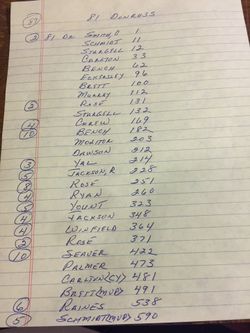 57 81 DONRUSS
2 81 DR SMITH, O 1
SCHMIDT 11
STARGELL 12
CARLTON 33
BENCH 62
ECKERSLEY 96
BRETT 100
MURRAY 112
2 ROSE 131
STARGELL 132
4 CAREW 169
10 BENCH 182
MOLITOR 203
DAWSON 212
3 YAZ 214
5 JACKSON, R 228
8 ROSE 251
4 RYAN 260
5 YOUNT 323
4 JACKSON 348
4 WINFIELD 364
2 ROSE 371
10 SEAVER 422
PALMER 473
CARLTON (CY) 481
BRETT (MVP) 491
6 RAINES 538
5 SCHMIDT (MVP) 590